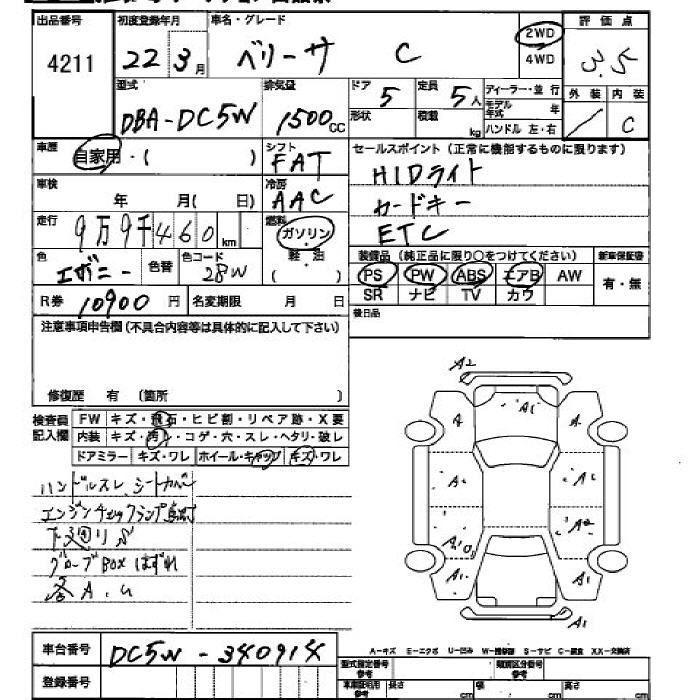 出品番号 初度登録年月 車名・グレード 評価点
4211 22年3月 ベリーサ C 2WD 4WD 3.5
型式 排気量 ドア 定員 ディーラー・並行 外装 内装
DBA-DC5W 1500cc 5 5人 モデル年式 年 C
形状 積載 kg ハンドル 左・右
車歴 自家用・( ) シフト FAT セールスポイント(正常に機能するものに限ります)
車検 年 月(日) 冷房 AAC HIDライト
走行 9万9千460km 燃料 ガソリン カードキー
軽・油 ( ) ETC
色 エボニー 色替 色コード 28W 装備品(純正品に限り○をつけてください) 新車保証書
PS PW ABS エアB AW 有・無
R券 10900円 名変期限 月 日 SR ナビ TV カワ
注意事項申告欄(不具合内容等は具体的に記入して下さい) 後日品
修復歴 有(箇所 )
検査員記入欄 FW キズ・飛石・ヒビ割・リペア跡・X要
内装 キズ・汚れ・コゲ・穴・スレ・ヘタリ・破レ
ドアミラー キズ・ワレ ホイール・キャップ キズ・ワレ
ハンドルスレ、シートカバー
エンジンチェックランプ点灯
下廻りS
グローブBOXはずれ
各A.U
A2
A A1 A
A A
A A2
A1
A1 A1
A1
車台番号 DC5W-340914
登録番号
A-キズ E-エクボ U-凹み W-補修跡 S-サビ C-腐食 XX-交換済
型式指定番号 参考 類別区分番号 参考
車庫証明用 参考 長さ cm 幅 cm 高さ cm